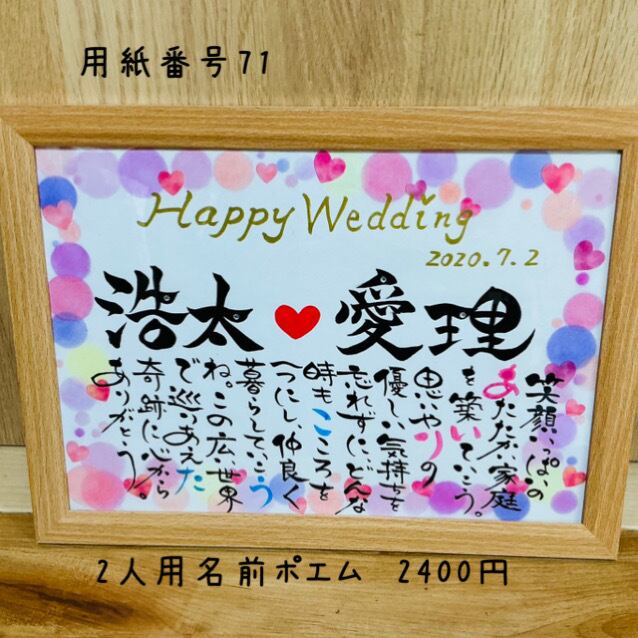 用紙番号71
Happy Wedding
2020.7.2
浩太♥愛理
笑顔いっぱいの
あたたかい家庭
を築いていこう。
思いやりの
優しい気持ちを
忘れずに、どんな
時もこころを
一つにし、仲良く
暮らしていこう
ね。この広い世界
で巡りあえた
奇跡に心から
ありがとう。
2人用名前ポエム 2400円